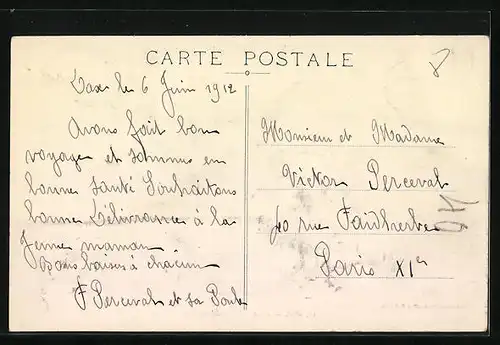 CARTE POSTALE
Dax le 6 Juin 1912
Avons fait bon
voyage et sommes en
bonne santé Souhaitons
bonne Délivrance à la
Jeune maman
Bons baisers à chacun
F Perceval et sa
Monsieur et Madame
Victor Perceval
40 rue Faidherbe
Paris XIe